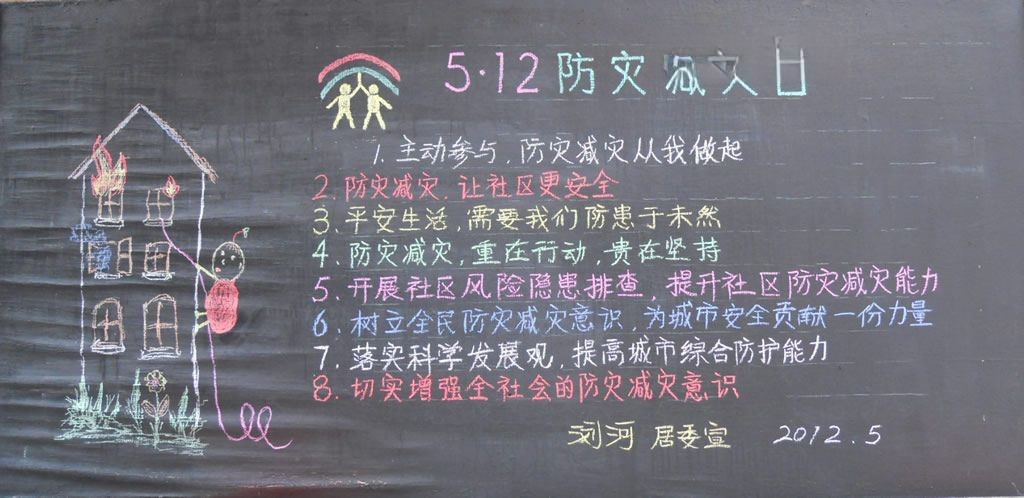 5·12防灾减灾日
1. 主动参与,防灾减灾从我做起
2. 防灾减灾,让社区更安全
3. 平安生活,需要我们防患于未然
4. 防灾减灾,重在行动,贵在坚持
5. 开展社区风险隐患排查,提升社区防灾减灾能力
6. 树立全民防灾减灾意识,为城市安全贡献一份力量
7. 落实科学发展观,提高城市综合防护能力
8. 切实增强全社会的防灾减灾意识
浏河 居委宣 2012.5